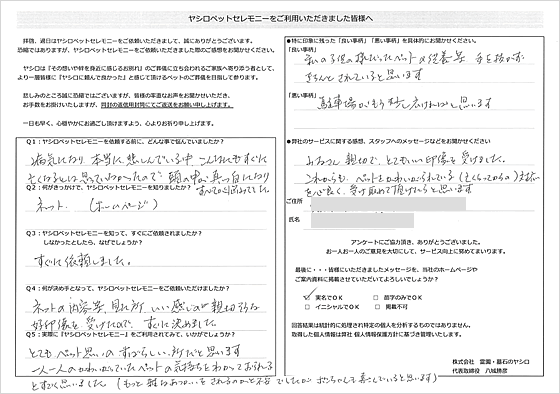 ヤシロペットセレモニーをご利用いただきました皆様へ
拝啓、ヤシロペットセレモニーをご依頼いただきまして、誠にありがとうございます。
恐縮ではありますが、ヤシロペットセレモニーをご依頼いただきました際のご感想をお聞かせください。
ヤシロは『その想いや絆を身近に感じるお別れ』のご葬儀に立ち会われるご家族へ寄り添う者として、
より一層皆様に『ヤシロに頼んで良かった』と感じて頂けるペットのご葬儀を目指して参ります。
悲しみのところ誠に恐縮ではございますが、皆様の率直なお声をお聞かせいただき、
お手数をお掛けいたしますが、同封の返信用封筒にてご返送をお願い申し上げます。
一日も早く、心穏やかにお過ごし頂けますよう、心よりお祈り申し上げます。
Q1：ヤシロペットセレモニーを依頼する前に、どんな事で悩んでいましたか？
病気になり 本当に悲しんでいる中 こんなにもすぐに
亡くなるとは思っていなかったので 頭の中が真っ白になり
すべてに悩みでした。
Q2：何がきっかけで、ヤシロペットセレモニーを知りましたか？
ネット．（ホームページ）
Q3：ヤシロペットセレモニーを知って、すぐにご依頼されましたか？
しなかったとしたら、なぜでしょうか？
すぐに依頼しました。
Q4：何が決め手となって、ヤシロペットセレモニーをご依頼いただけましたか？
ネットの内容等、見た所、いい感じので親切そうな
好印象を受けたので、すぐに決めました。
Q5：実際に『ヤシロペットセレモニー』をご利用されてみて、いかがでしょうか？
とてもペット思いの すばらしい所だと思います
一人一人のかわいがっていたペットの気持ちをわかっておられる
とすごく思いました。（もっと雑なあつかいをされるのかと不安でしたが 喜んでいると思います）
●特に印象に残った「良い事柄」「悪い事柄」を具体的にお聞かせください。
「良い事柄」
私の子供の様だったペットの供養等 手を抜かず
きちんとされていると思います
「悪い事柄」
駐車場がもう少し広ければと思います
●弊社のサービスに関する感想、スタッフへのメッセージなどをお聞かせください
みなさん 親切で、とてもいい印象を受けました。
これからも、ペットをかわいがられている（亡くなってからの）対応
を心良く、受け止めて頂けたらと思います
ご住所
氏名
アンケートにご協力頂き、ありがとうございました。
お一人お一人のご意見を大切にして、サービス向上に努めてまいります。
最後に・・・皆様にいただきましたメッセージを、当社のホームページや
ご案内資料に掲載させていただいてよろしいでしょうか？
☑ 実名でOK □ 苗字のみでOK
□ イニシャルでOK □ 掲載不可
回答結果は統計的に処理され特定の個人を分析するものではありません。
取得した個人情報は弊社 個人情報保護方針に基づき管理いたします。
株式会社 霊園・墓石のヤシロ
代表取締役 八城勝彦